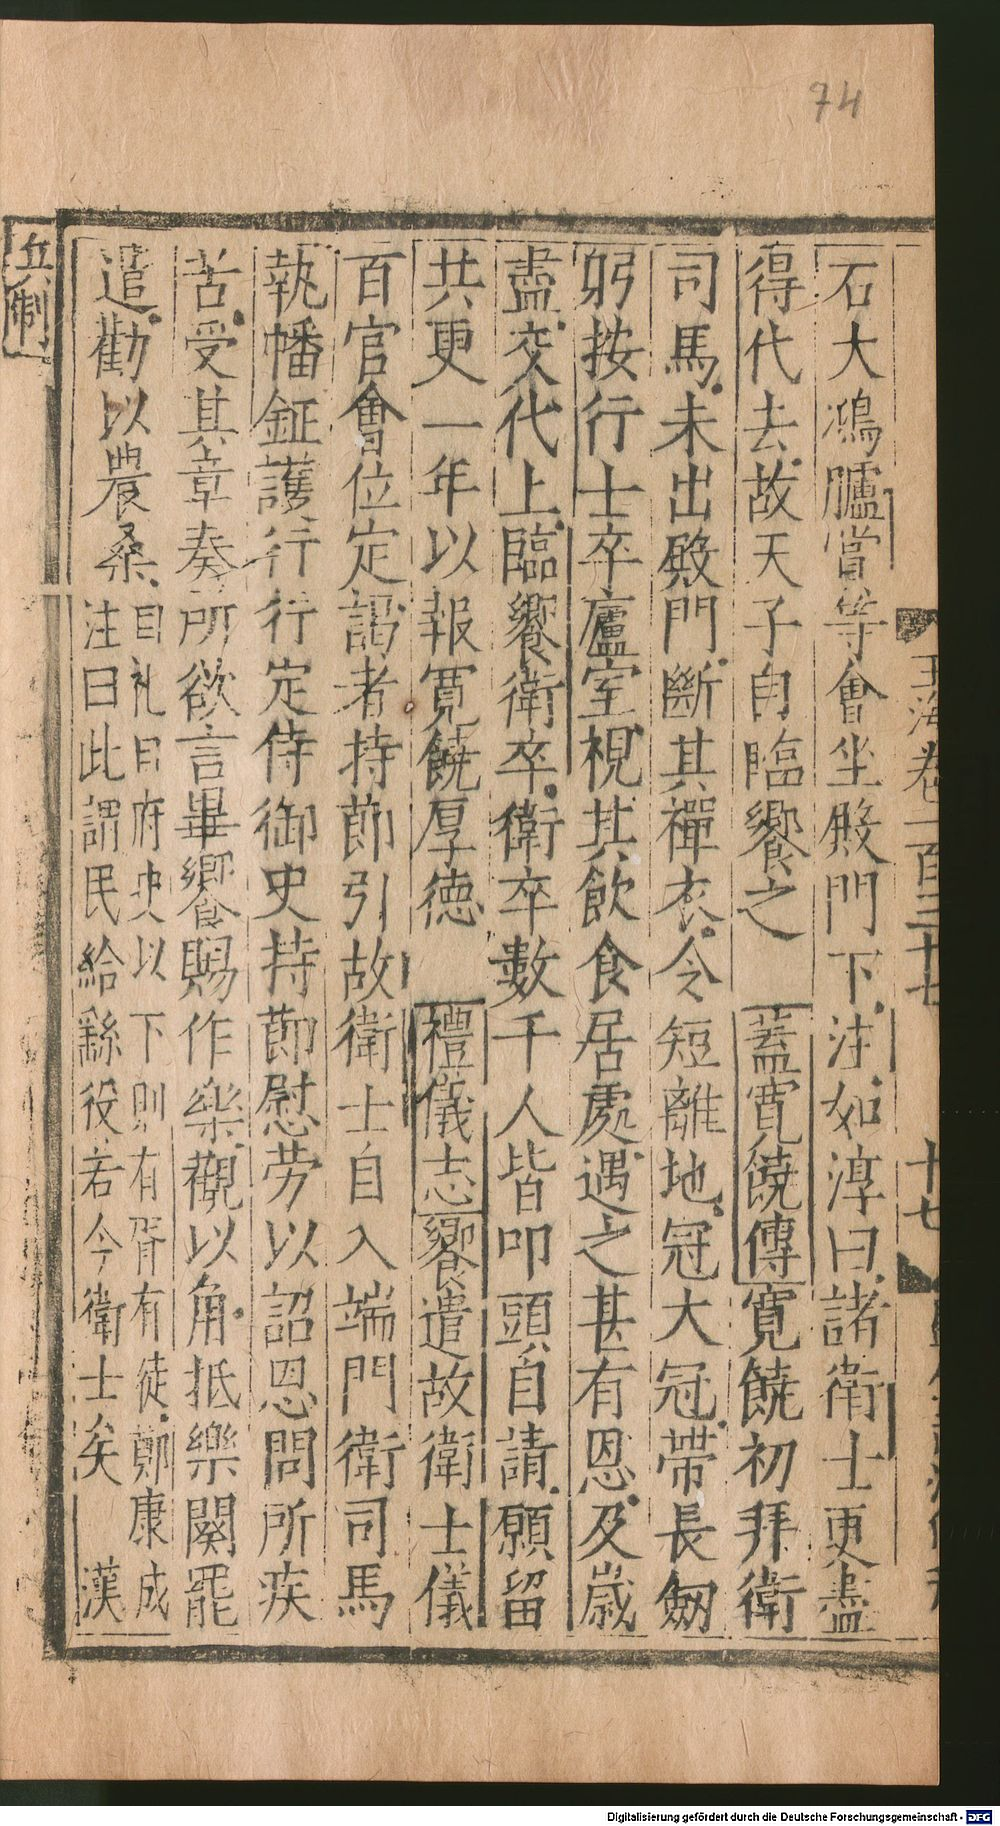 74
玉海卷一百三十七
十七
石大鴻臚當等會坐殿門下注如淳曰諸衛士更盡
得代去故天子自臨饗之 蓋寬饒傳寬饒初拜衛
司馬未出殿門斷其襌衣令短離地冠大冠帶長劒
躬按行士卒廬室視其飲食居處遇之甚有恩及歲
盡交代上臨饗衛卒衛卒數千人皆叩頭自請願留
共更一年以報寬饒厚德 禮儀志饗遣故衛士儀
百官會位定謁者持節引故衛士自入端門衛司馬
執幡鉦護行行定侍御史持節慰勞以詔恩問所疾
苦受其章奏所欲言畢饗賜作樂觀以角抵樂闋罷
遣勸以農桑
目礼曰府史以下則有胥有徒鄭康成
注曰此謂民給繇役若今衛士矣 漢
兵制
Digitalisierung gefördert durch die Deutsche Forschungsgemeinschaft - DFG